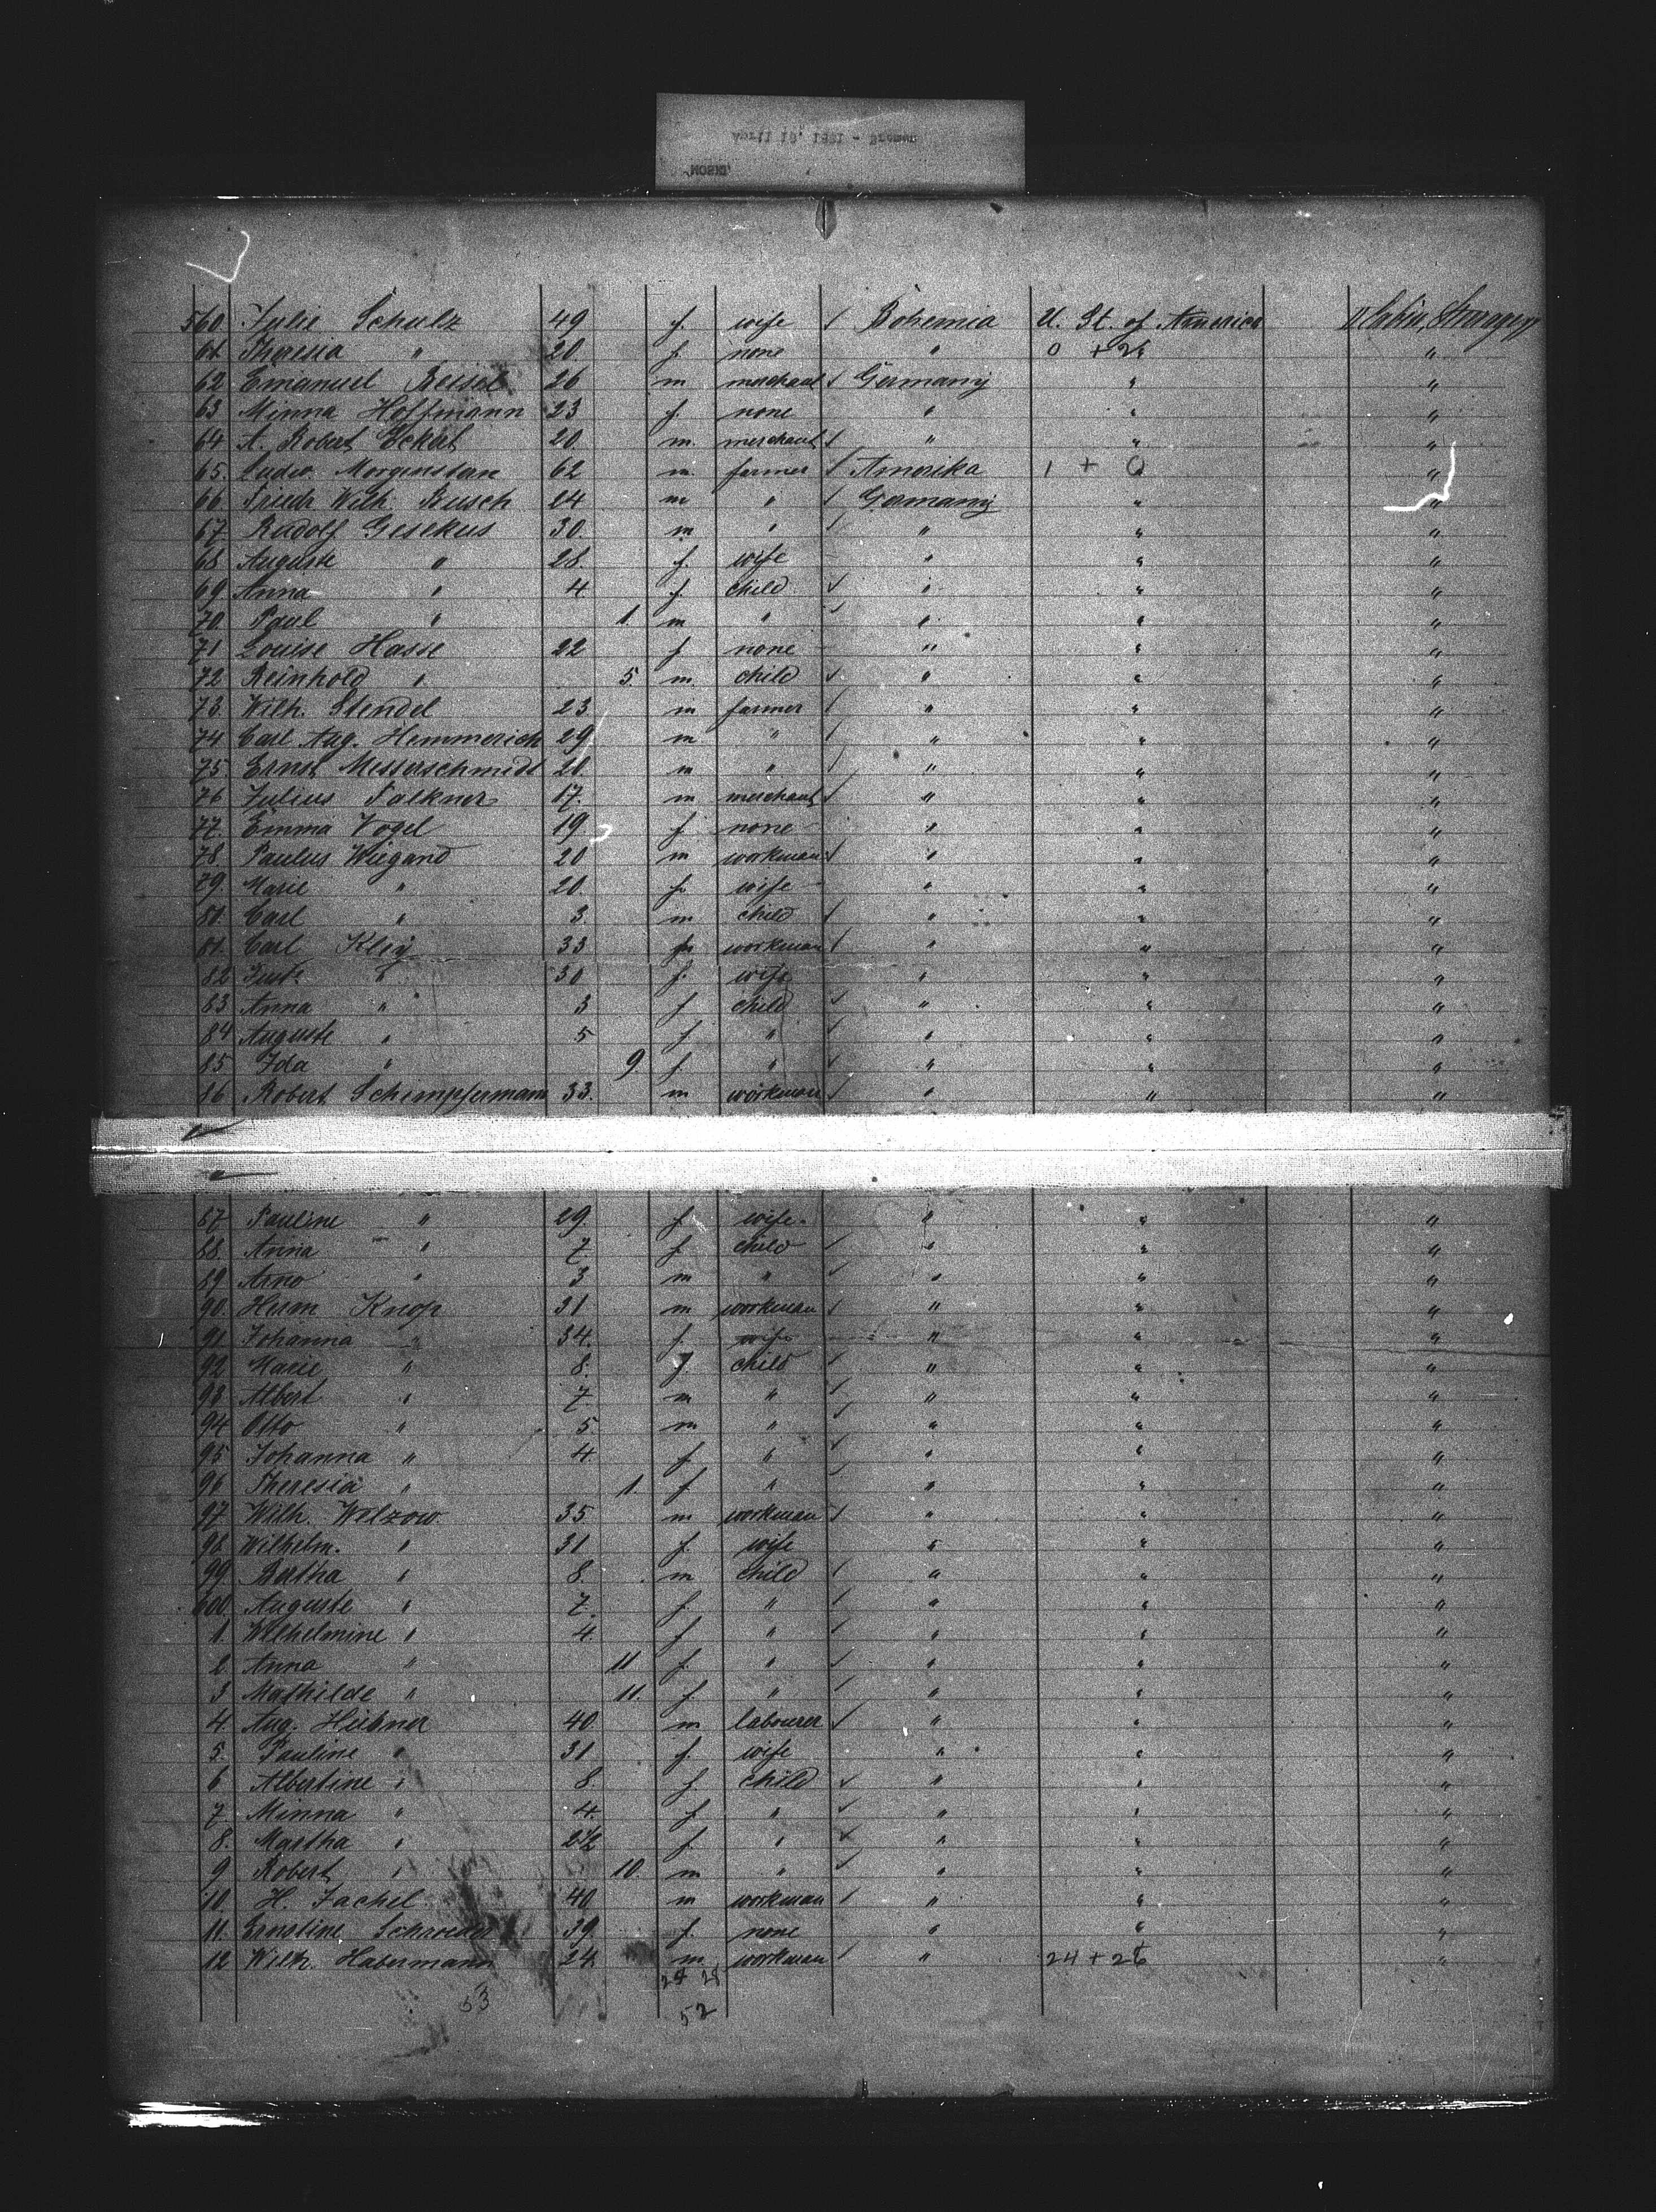 April 19, 1881 - Bremen
560. Julie Schulz 49 f. wife Bohemia U. St. of America II Cabin,
61 Theresia " 20. f. none " 0 + 2 "
62 Emanuel 26 m merchant Germany " "
63 Minna Hoffmann 23 f. none " " "
64 A. Robert Eckert 20. m. merchant " " "
65. Ludw. Morgenstern 62 m. farmer Amerika 1 + 0 "
66. Friedr Wilh Busch 24 m " Germany " "
67. Rudolf Gesekus 30. m " " " "
68 Auguste " 28. f. wife " " "
69. Anna " 4 f. child " " "
70. Paul " 1. m " " " "
71 Louise Hasse 22 f none " " "
72 Reinhold " 5. m. child " " "
73. Wilh. Stendel 23 m farmer " " "
74 Carl Aug. Hemmerich 29 m " " " "
75. Ernst Messerschmidt 21. m " " " "
76 Julius Falkner 17. m merchant " " "
77. Emma Vogel 19 f. none " " "
78. Paulus Wiegand 20 m workman " " "
79. Marie " 20. f. wife " " "
80. Carl " 3. m child " " "
81. Carl 33 m workman " " "
82 " 30 f. wife " " "
83 Anna " 3 f child " " "
84 Auguste " 5 f " " " "
85 Ida " 9. f. " " " "
86 Robert Schimpfermann 33. m workman " " "
87 Pauline " 29. f wife " " "
88. Anna " 7 f child " " "
89. Arno " 3 m " " " "
90. Herm Knop 31 m workman " " "
91 Johanna " 34. f. wife " " "
92 Marie " 8. f. child " " "
93 Albert " 7 m " " " "
94 Otto " 5. m " " " "
95 Johanna " 4. f " " " "
96 Theresia " 1. f " " " "
97 Wilh. Welzow. 35 m workman " " "
98. Wilhelm. " 31 f wife " " "
99 Bertha " 8. m child " " "
600. Auguste " 7. f. " " " "
1. Wilhelmine " 4. f " " " "
2. Anna " 11 f. " " " "
3 Mathilde " 11. f. " " " "
4. Aug. Hübner 40. m labourer " " "
5. Pauline " 31 f. wife " " "
6 Albertine " 8. f. child " " "
7 Minna " 4. f " " " "
8. Martha " 2 1/2 f. " " " "
9 Robert " 10. m " " " "
10. H. Jachel. 40. m workman " " "
11. Ernstine Schroeder 39. f. none " " "
12 Wilh. Habermann 24. m workman " 24 + 26 "
53 24 28
52